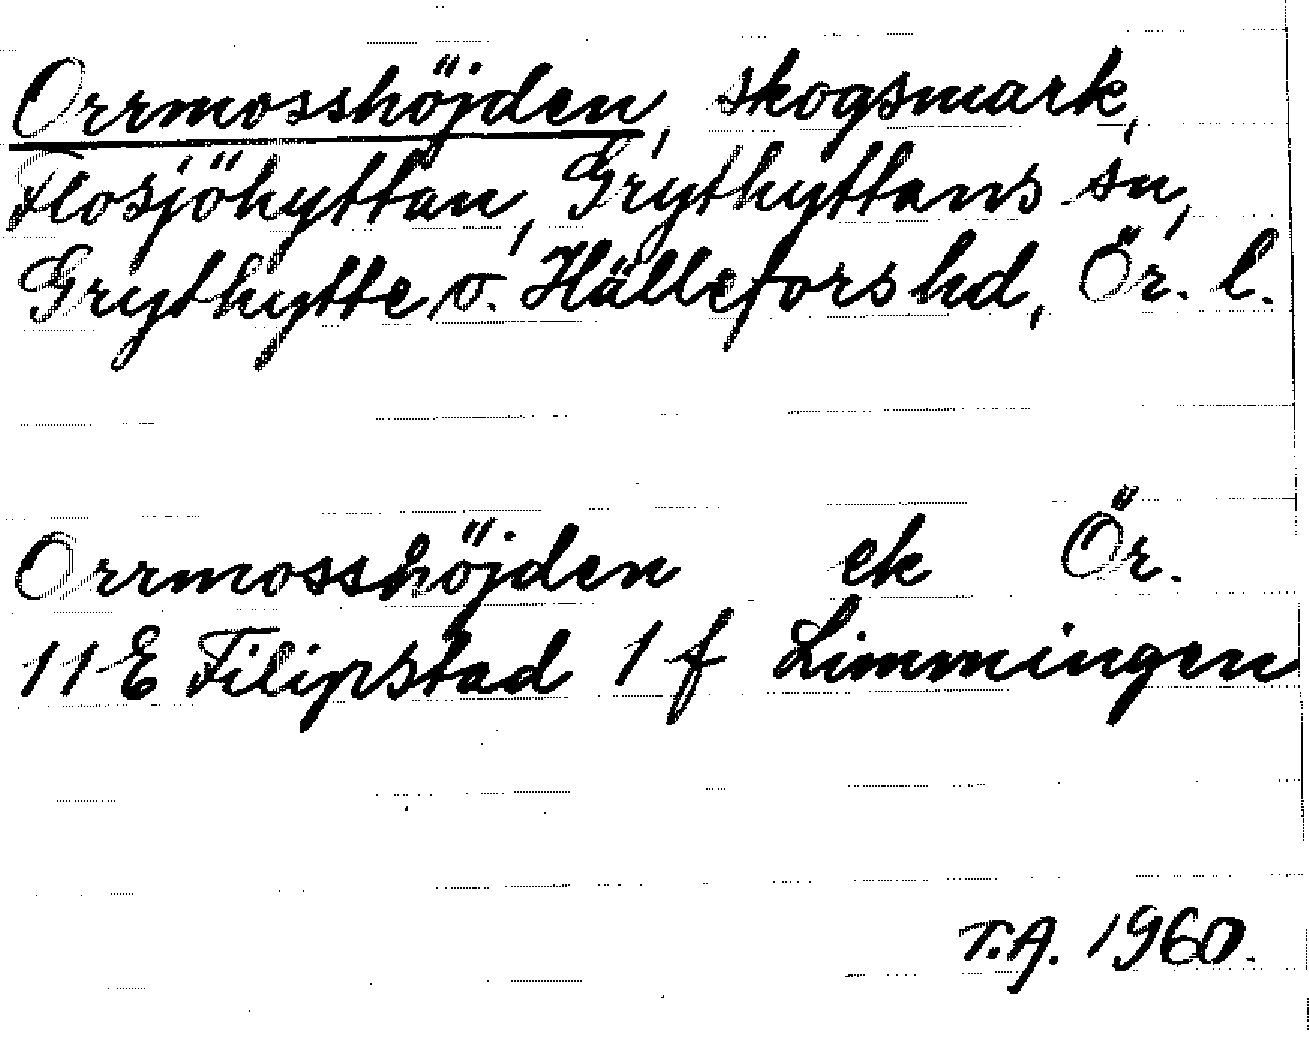 Orrmosshöjden, skogsmark,
Flosjöhyttan, Grythyttans sn,
Grythytte o. Hällefors hd, Ör. l.
Orrmosshöjden ek Ör.
11E Filipstad 1 f Limmingen
T.A. 1960.